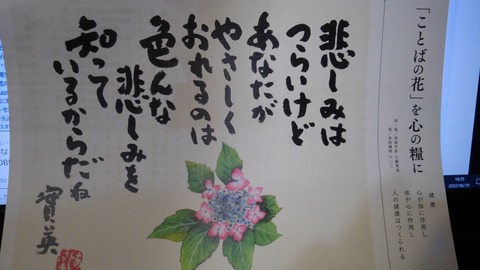 「ことばの花」を心の糧に
健康
心が体に作用し
体が心に作用し
人の健康はつくられる
悲しみは
つらいけど
あなたが
やさしく
おれるのは
色んな
悲しみを
知って
いるからだね
實英